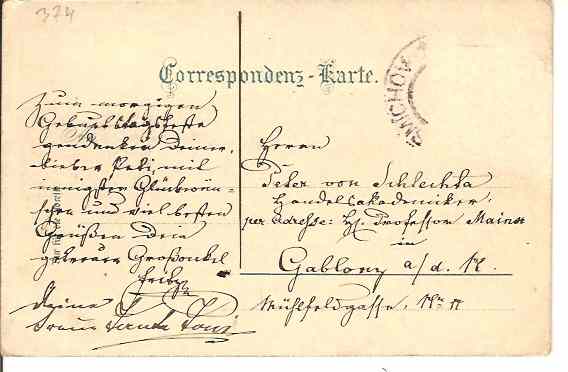 374
Correspondenz-Karte.
SMICHOW
Zum morgigen
Geburtstagsfeste
gedenken Deiner,
lieber Peter, mit
innigsten Glückwün-
schen und viel besten
Grüßen Dein
getreuer Großonkel
Fritz
Deine
treue Tante Toni
Herrn
Peter von Schlechta
Handelsakademiker
per Adresse: H. Professor
in
Gablonz a/d. N.
Mühlfeldgasse,